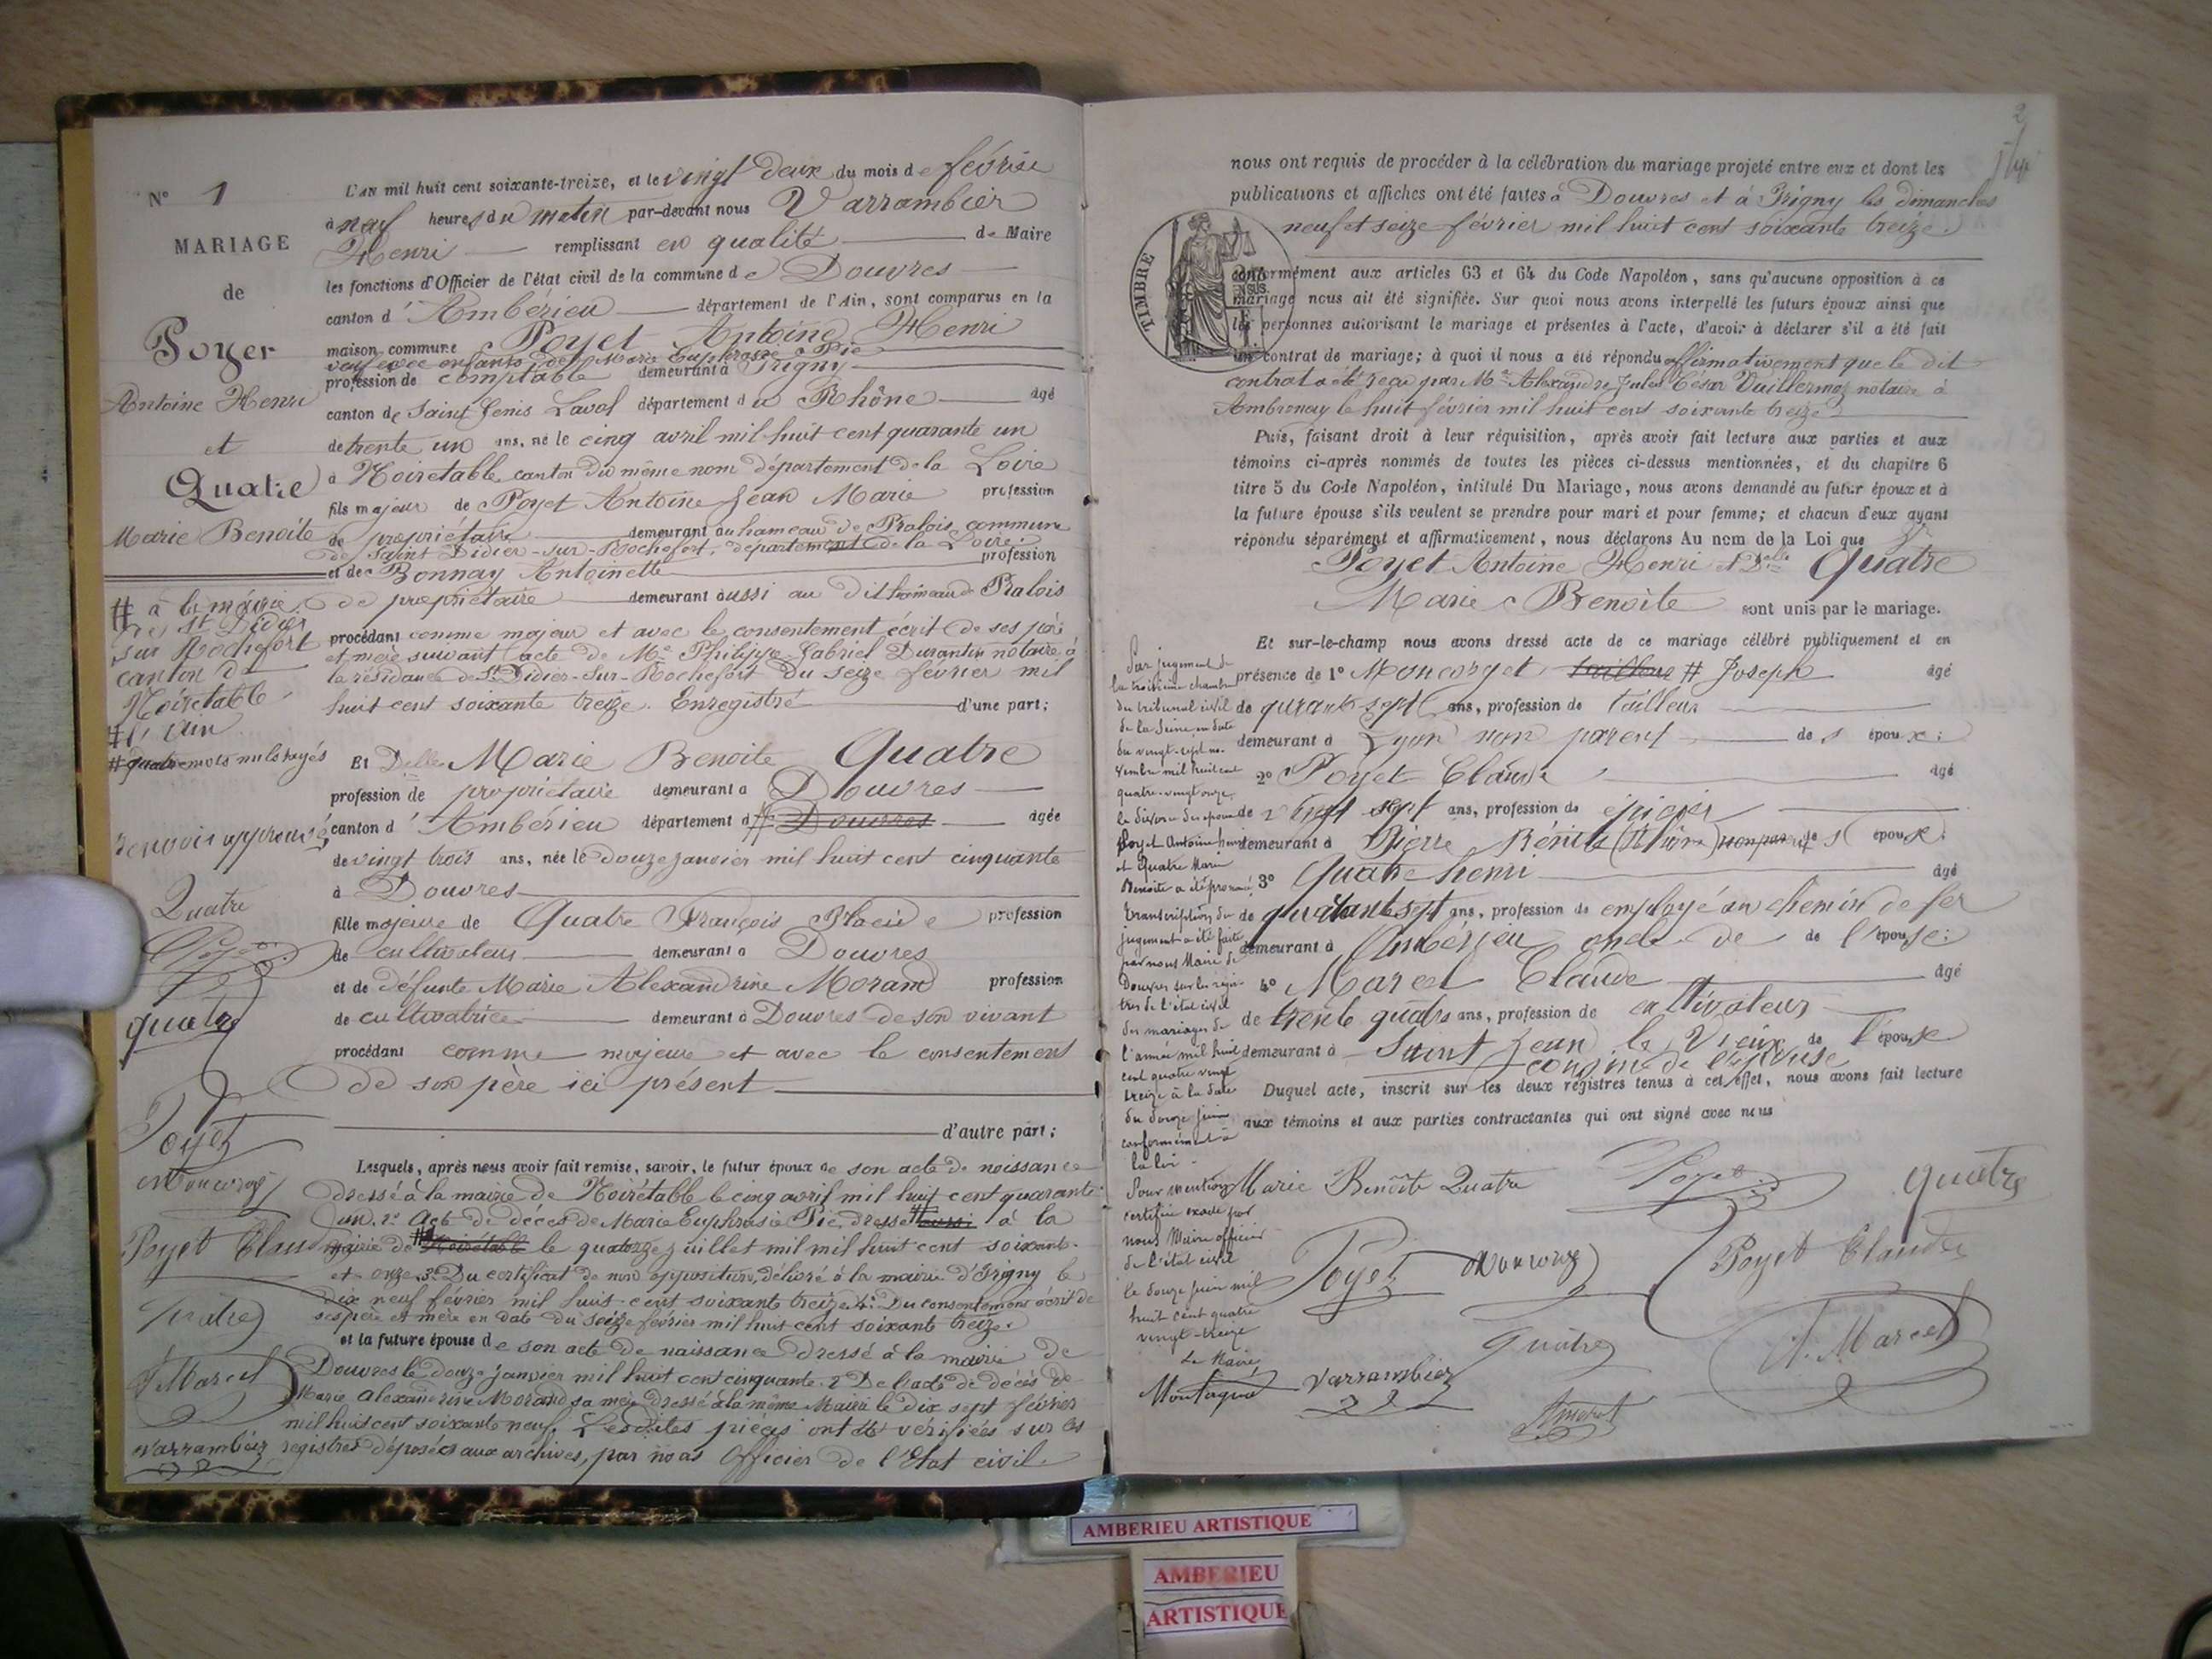 N° 1
MARIAGE
de
Poyer
Antoine Henri
et
Quatre
Marie Benoite
# à la mairie
de St Didier
sur Rochefort
canton de
Noirétable
# l'Ain
# quatre mots nuls rayés
renvois approuvés
Quatre
Poyet
quatre
Poyet
Moncorgé
Poyet Claude
Quatre
A. Marcel
Varrambier
L'AN mil huit cent soixante-treize, et le vingt deux du mois de février
à neuf heures du matin par-devant nous Varrambier
Henri remplissant en qualité de Maire
les fonctions d'Officier de l'état civil de la commune de Douvres
canton d'Ambérieu département de l'Ain, sont comparus en la
maison commune Poyet Antoine Henri
veuf avec enfants de Marie Euphrosie Pie
profession de comptable demeurant à Irigny
canton de Saint Genis Laval département du Rhône âgé
de trente un ans, né le cinq avril mil huit cent quarante un
à Noiretable canton du même nom département de la Loire
fils majeur de Poyet Antoine Jean Marie profession
de propriétaire demeurant au hameau de Pralois commune
de Saint Didier-sur-Rochefort, département de la Loire
et de Bonnay Antoinette profession
de propriétaire demeurant aussi au dit hameau de Pralois
procédant comme majeur et avec le consentement écrit de ses père
et mère suivant acte de Me Philippe Gabriel Durantin notaire à
la résidance de St Didier-Sur-Rochefort du seize février mil
huit cent soixante treize. Enregistré d'une part;
Et Delle Marie Benoite Quatre
profession de propriétaire demeurant à Douvres
canton d'Ambérieu département d # Douvres âgée
de vingt trois ans, née le douze janvier mil huit cent cinquante
à Douvres
fille majeure de Quatre François Placide profession
de cultivateur demeurant à Douvres
et de défunte Marie Alexandrine Morand profession
de cultivatrice demeurant à Douvres de son vivant
procédant comme majeure et avec le consentement
de son père ici présent
d'autre part;
Lesquels, après nous avoir fait remise, savoir, le futur époux de son acte de naissance
dressé à la mairie de Noirétable le cinq avril mil huit cent quarante
un. 2° Acte de décès de Marie Euphrasie Pie, dressé # aussi à la
mairie de # Noirétable le quatorze juillet mil mil huit cent soixante
et onze. 3° Du certificat de non opposition, délivré à la mairie d'Irigny le
dix neuf février mil huit cent soixante treize. 4° Du consentement écrit de
ses père et mère en date du seize février mil huit cent soixante treize.
et la future épouse de son acte de naissance dressé à la mairie de
Douvres le douze janvier mil huit cent cinquante. 2 De l'acte de décès de
Marie Alexandrine Morand sa mère dressé à la même Mairie le dix sept février
mil huit cent soixante neuf. Lesdites pièces ont été vérifiées sur les
registres déposés aux archives, par nous Officier de l'Etat civil
2
nous ont requis de procéder à la célébration du mariage projeté entre eux et dont les
publications et affiches ont été faites à Douvres et à Irigny les dimanches
neuf et seize février mil huit cent soixante treize.
TIMBRE
conformément aux articles 63 et 64 du Code Napoléon, sans qu'aucune opposition à ce
mariage nous ait été signifiée. Sur quoi nous avons interpellé les futurs époux ainsi que
les personnes autorisant le mariage et présentes à l'acte, d'avoir à déclarer s'il a été fait
un contrat de mariage; à quoi il nous a été répondu affirmativement que le dit
contrat a été reçu par Me Alexandre Jules César Vuillermoz notaire à
Ambronay le huit février mil huit cent soixante treize
Puis, faisant droit à leur réquisition, après avoir fait lecture aux parties et aux
témoins ci-après nommés de toutes les pièces ci-dessus mentionnées, et du chapitre 6
titre 5 du Code Napoléon, intitulé Du Mariage, nous avons demandé au futur époux et à
la future épouse s'ils veulent se prendre pour mari et pour femme; et chacun d'eux ayant
répondu séparément et affirmativement, nous déclarons Au nom de la Loi que
Poyet Antoine Henri et Delle Quatre
Marie Benoite sont unis par le mariage.
Et sur-le-champ nous avons dressé acte de ce mariage célébré publiquement et en
présence de 1° Moncorget tailleur # Joseph âgé
de quarante sept ans, profession de tailleur
demeurant à Lyon non parent des époux;
2° Poyet Claude âgé
de vingt sept ans, profession de épicier
demeurant à Pierre Bénite (Rhône) non parent des époux;
3° Quatre henri âgé
de quarante sept ans, profession de employé au chemin de fer
demeurant à Ambérieu oncle de de l'épouse;
4° Marcel Claude âgé
de trente quatre ans, profession de cultivateur
demeurant à Saint Jean le Vieux de l'épouse
cousin de l'épouse
Duquel acte, inscrit sur les deux régistres tenus à cet effet, nous avons fait lecture
aux témoins et aux parties contractantes qui ont signé avec nous
Par jugement de
la troisième chambre
du tribunal civil
de la Seine, en date
du vingt-sept no-
vembre mil huit cent
quatre-vingt onze,
le divorce des époux
Poyet Antoine henri
et Quatre Marie
Benoite a été prononcé
transcription du
jugement a été faite
par nous Maire de
Douvres sur les regis-
tres de l'état civil
des mariages de
l'année mil huit
cent quatre vingt
treize à la date
du douze juin
conformément à
la loi.
Pour mention
certifiée exacte par
nous Maire officier
de l'état civil
le douze juin mil
huit cent quatre
vingt-treize
Le Maire
Montagnat
Marie Benoite Quatre
Poyet
quatre
Poyet
Moncorgé
Poyet Claude
Quatre
A. Marcel
Varrambier
AMBERIEU ARTISTIQUE
AMBERIEU
ARTISTIQUE